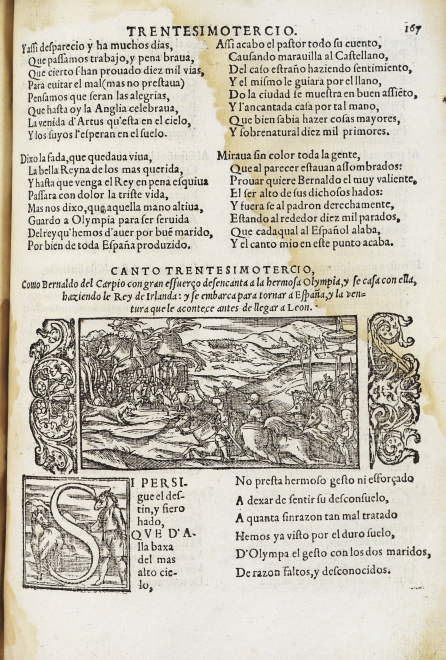 TRENTESIMOTERCIO. 167
Y assi desparecio y ha muchos dias,
Que passamos trabajo, y pena braua,
Que cierto s'han prouado diez mil vias,
Para euitar el mal (mas no prestaua)
Pensamos que seran las alegrias,
Que hasta oy la Anglia celebraua,
La venida d'Artus qu'esta en el cielo,
Y los suyos l'esperan en el suelo.
Dixo la fada, que quedaua viua,
La bella Reyna de los mas querida,
Y hasta que venga el Rey en pena esquiua
Passara con dolor la triste vida,
Mas nos dixo, que aquella mano altiua,
Guardo a Olympia para ser seruida
Del rey qu'hemos d'auer por bue marido,
Por bien de toda España produzido.
Assi acabo el pastor todo su cuento,
Causando marauilla al Castellano,
Del caso estraño haziendo sentimiento,
Y el mismo le guiara por el llano,
Do la ciudad se muestra en buen assiẽto,
Y l'ancantada casa por tal mano,
Que bien sabia hazer cosas mayores,
Y sobrenatural diez mil primores.
Miraua sin color toda la gente,
Que al parecer estauan assombrados:
Prouar quiere Bernaldo el muy valiente,
El ser alto de sus dichosos hados:
Y fuera se al padron derechamente,
Estando al rededor diez mil parados,
Que cada qual al Español alaba,
Y el canto mio en este punto acaba.
CANTO TRENTESIMOTERCIO,
Como Bernaldo del Carpio con gran esfuerço desencanta a la hermosa Olympia, y se casa con ella,
haziendo le Rey de Irlanda: y se embarca para tornar a España, y la ven-
tura que le acontece antes de llegar a Leon.
SI PERSI-
gue el des-
tin, y fiero
hado,
QVE D'A-
lla baxa
del mas
alto cie-
lo,
No presta hermoso gesto ni esforçado
A dexar de sentir su desconsuelo,
A quanta sinrazon tan mal tratado
Hemos ya visto por el duro suelo,
D'Olympa el gesto con los dos maridos,
De razon faltos, y desconocidos.